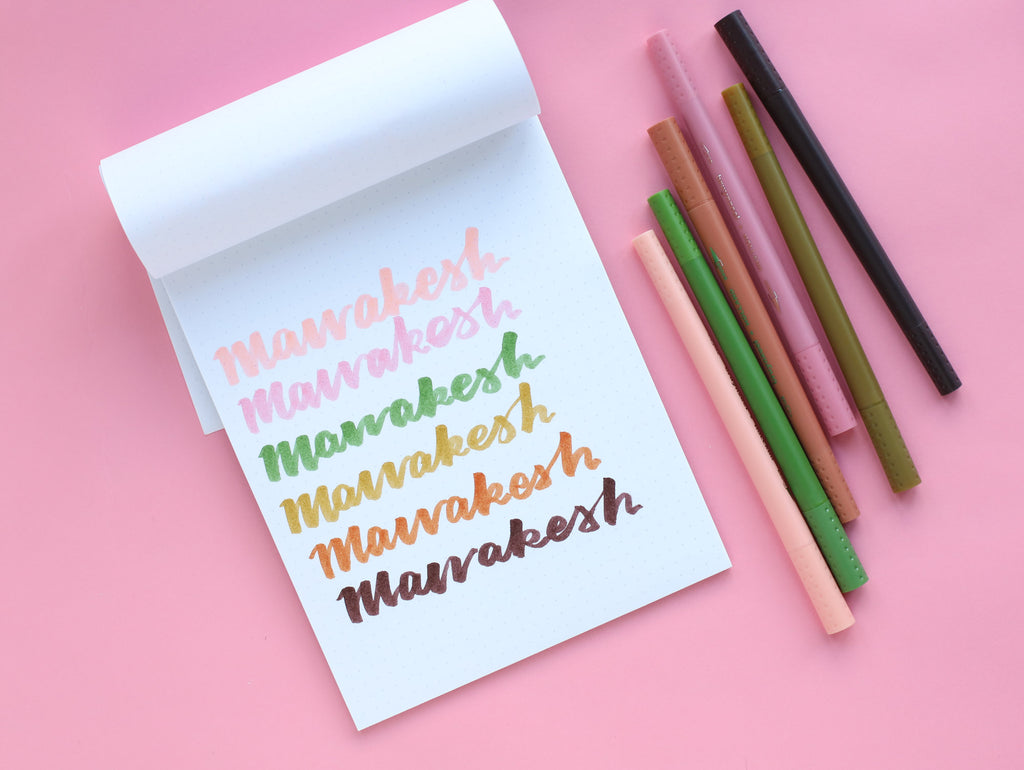 marrakesh
marrakesh
marrakesh
marrakesh
marrakesh
marrakesh